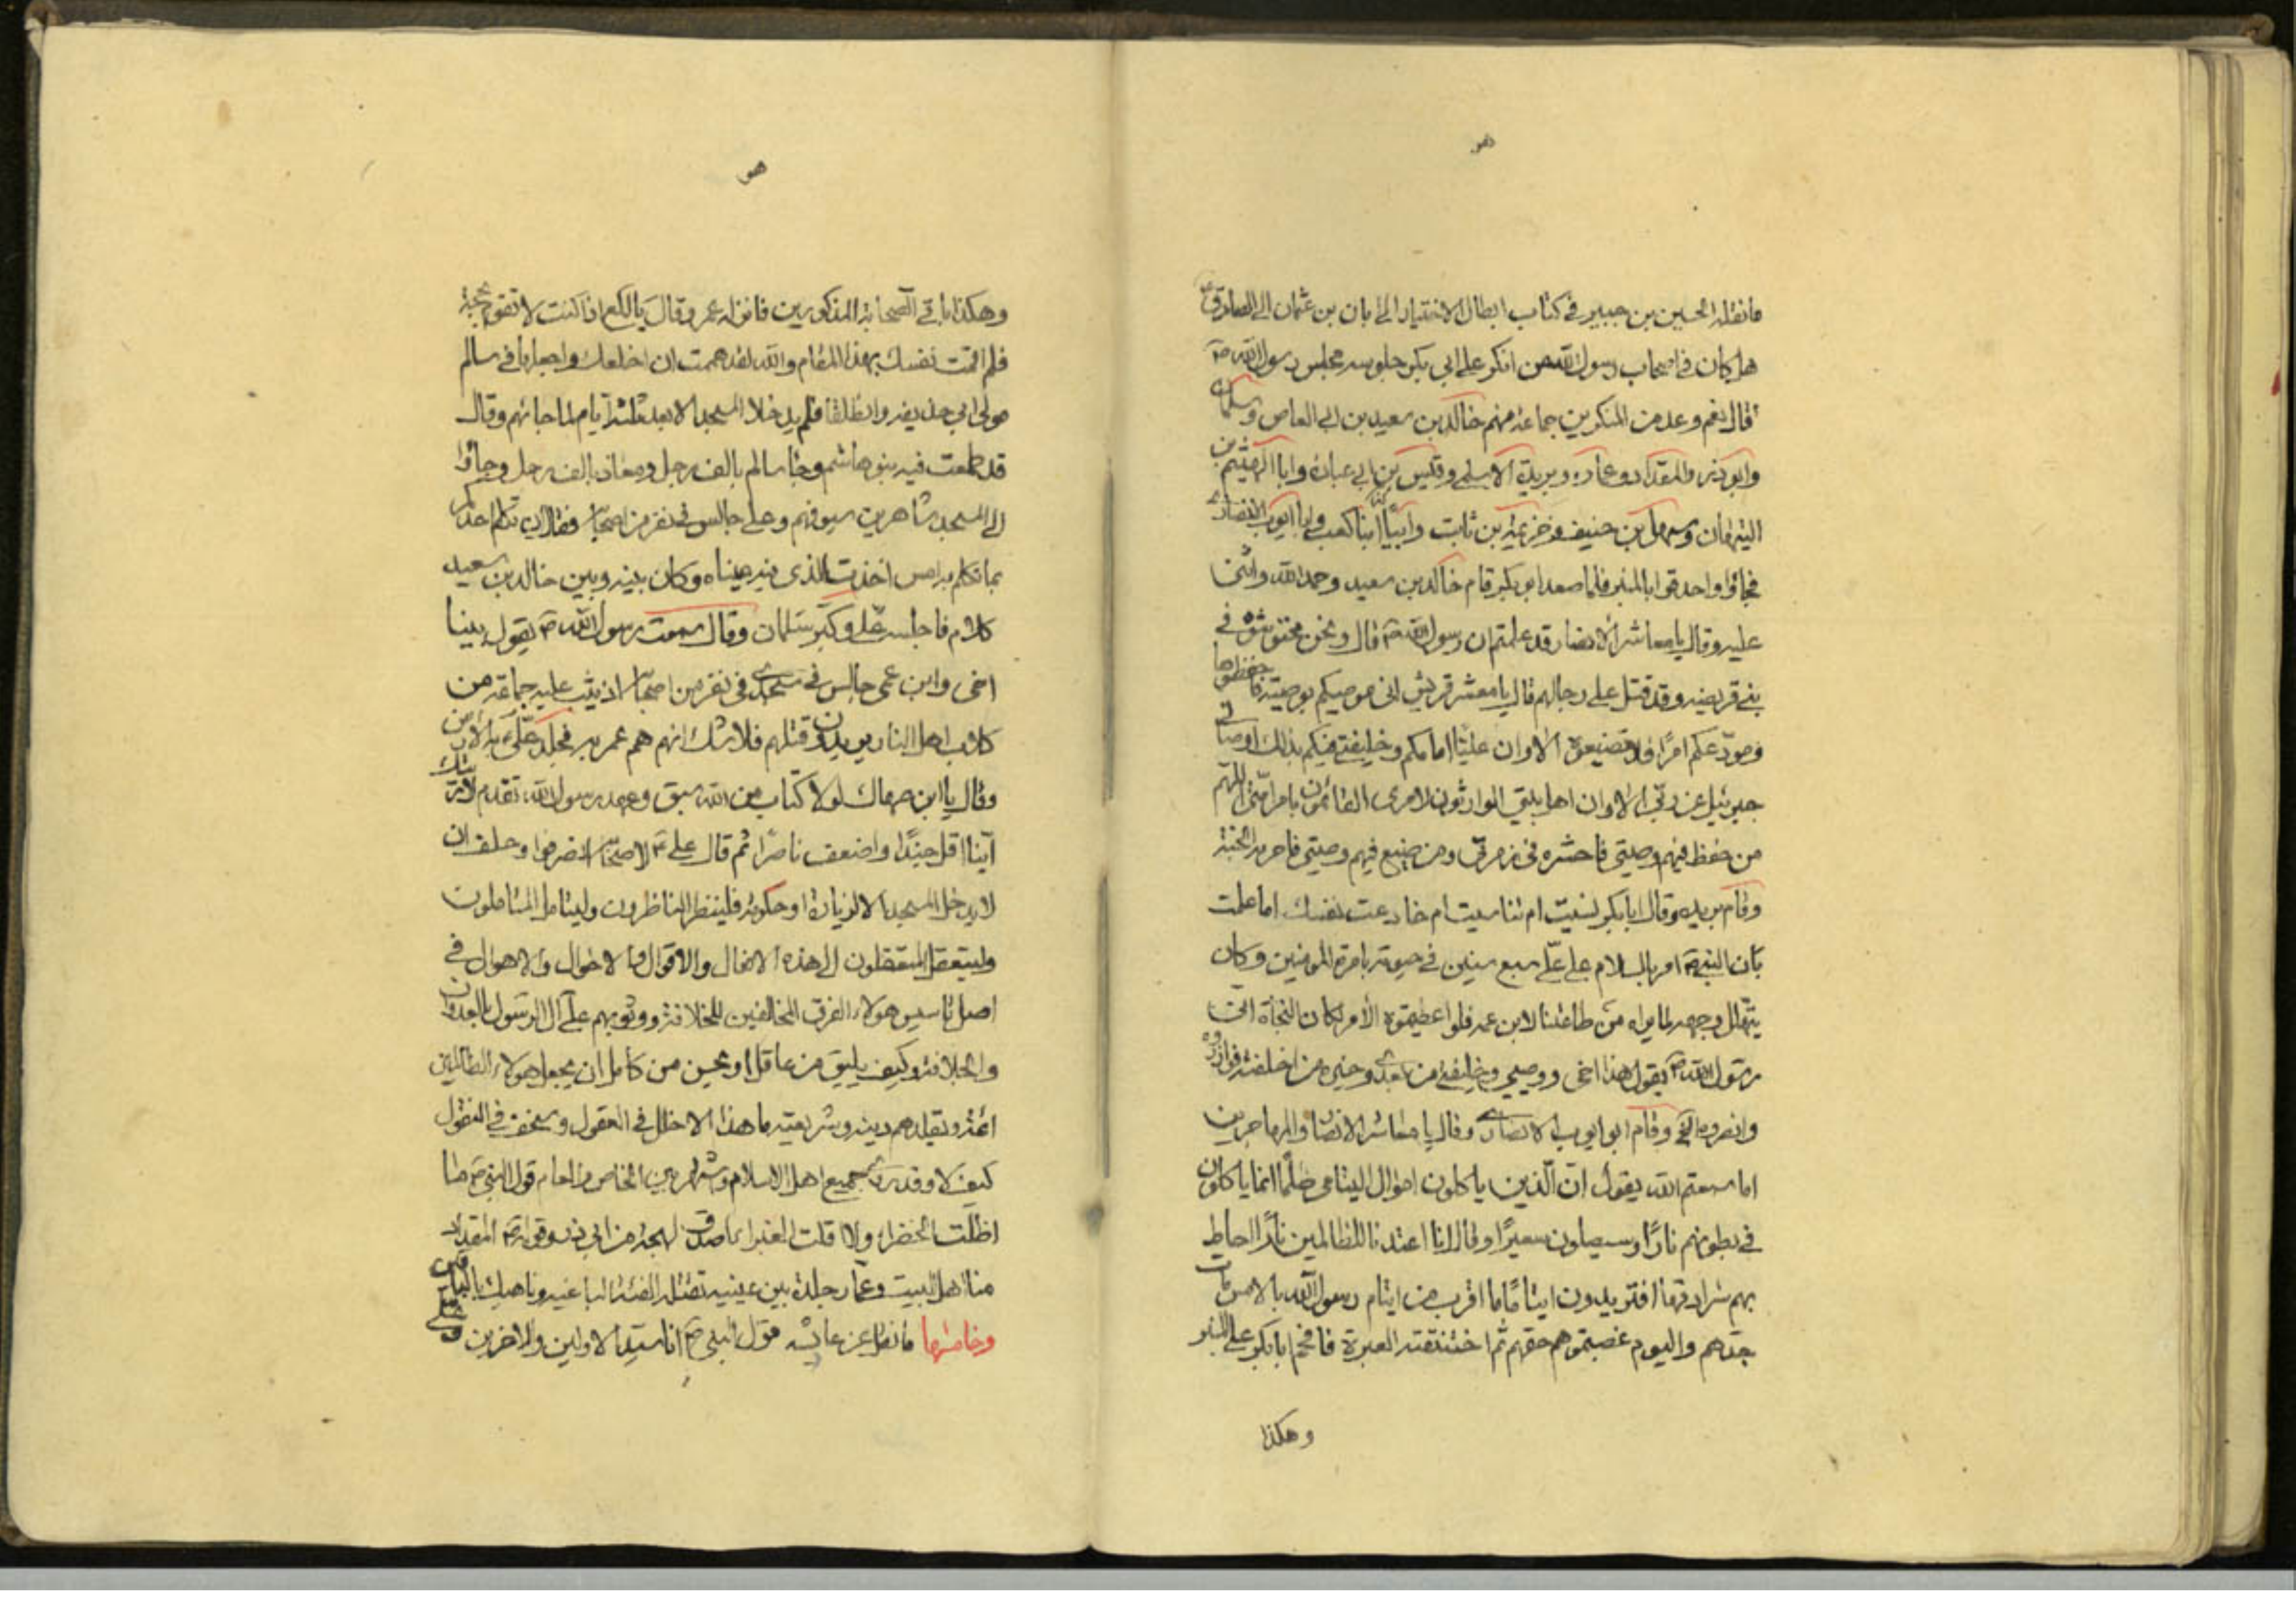 هو
ما نقله الحسين بن جبير في كتاب ابطال الاختيار الى ابان بن عثمان الى الصادق ع
هل كان في اصحاب رسول الله من انكر على ابي بكر جلوسه مجلس رسول الله ص
قال نعم وعد من المنكرين جماعة منهم خالد بن سعيد بن ابي العاص وسلمان
وابو ذر والمقداد وعمار وبريدة الاسلمي وقيس بن ابي عبادة وابا الهيثم بن
التيهان وسهل بن حنيف وخزيمة بن ثابت وابيا ابنا كعب وابا ايوب الانصاري
فجاؤا واحدقوا بالمنبر فلما صعد ابو بكر قام خالد بن سعيد وحمد الله واثنى
عليه وقال يا معاشر الانصار قد علمتم ان رسول الله ص قال ونحن محتوشوه في
بني قريضه وقد قتل علي رجالهم قال يا معشر قريش اني موصيكم بوصية فاحفظوها
ومودعكم امرا فلا تضيعوه الا وان عليا امامكم وخليفتي فيكم بذلك اوصاني
جبرئيل عن ربي الا وان اهل بيتي الوارثون لامري القائمون بامر امتي اللهم
من حفظ فيهم وصيتي فاحشره في زمرتي ومن ضيع فيهم وصيتي فاحرمه الجنة
وقام بريده وقال ابا بكر نسيت ام تناسيت ام خادعت نفسك اما علمت
بان النبي ص امر بالسلام على علي سبع سنين في حيوته بامرة المومنين وكان
يتهلل وجهه لما يراه من طاعتنا لابن عمه فلو اعطيتموه الأمر لكان النجاة
رسول الله ص يقول هذا اخي ووصيي وخليفتي من بعدي وخير من اخلفه فوازروه
وانصروه الخ وقام ابو ايوب الانصاري وقال يا معاشر الانصار والمهاجرين
اما سمعتم الله يقول ان الذين ياكلون اموال اليتامى ظلما انما ياكلون
في بطونهم نارا وسيصلون سعيرا وقال انا اعتدنا للظالمين نارا احاط
بهم سرادقها افتريدون ايتاما ما اقرب من ايتام رسول الله بالامس مات
جدهم واليوم غصبتموهم حقهم ثم اختنقته العبرة فافحم ابا بكر على المنبر
وهكذا
هو
وهكذا باقي الصحابة المذكورين فانزله عمر وقال يا لكع اذا كنت لا تقوم بحجة
فلم اقمت نفسك بهذا المقام والله لقد هممت ان اخلعك واجعلها في سالم
مولى ابي حذيفه وانطلقا فلم يدخلا المسجد الا بعد ثلثة ايام لما جائهم وقال
قد طمعت فيه بنو هاشم وجا سالم بالف رجل ومعاذ بالف رجل وجاؤا
الى المسجد شاهرين سيوفهم وعلي جالس في نفر من اصحابه فقال ان تكلم احدكم
بما تكلم به امس اخذت الذي فيه عيناه وكان بينه وبين خالد بن سعيد
كلام فاجلسه علي وكبر سلمان وقال سمعت رسول الله ص يقول بينا
اخي وابن عمي جالس في مسجدي في نفر من اصحابه اذ يثب عليه جماعة من
كلاب اهل النار يريدون قتلهم فلا شك انهم هم عمر به فجلد علي به الارض
وقال يا ابن صهاك لولا كتاب من الله سبق وعهد رسول الله تقدم لأريتك
اينا اقل جندا واضعف ناصرا ثم قال علي ع لاصحابه انصرفوا وحلف ان
لا يدخل المسجد الا لزيارة او حكومة فلينظر الناظرون وليتامل المتاملون
وليتعقل المتعقلون الى هذه الافعال والاقوال والاحوال والاهوال في
اصل تاسيس هولاء الفرق المخالفين للخلافة ووثوبهم على آل الرسول بالعدوان
والجلافة وكيف يليق من عاقل او يحسن من كامل ان يجعل هولاء الظالمين
ائمة ويقلدهم دينه وشريعته ما هذا الا خلل في العقول وسخف في النقول
كيف لا وقد روى جميع اهل الاسلام وشهر بين الخاص والعام قول النبي ص ما
اظلت الخضراء ولا اقلت الغبراء باصدق لهجة من ابي ذر وقوله ص المقداد
منا اهل البيت وعمار جلدة بين عينيه تقتله الفئة الباغيه وناهيك بالباقي
وخامسها ما نقل عن عايشه قول النبي ص انا سيد الاولين والاخرين وعلي